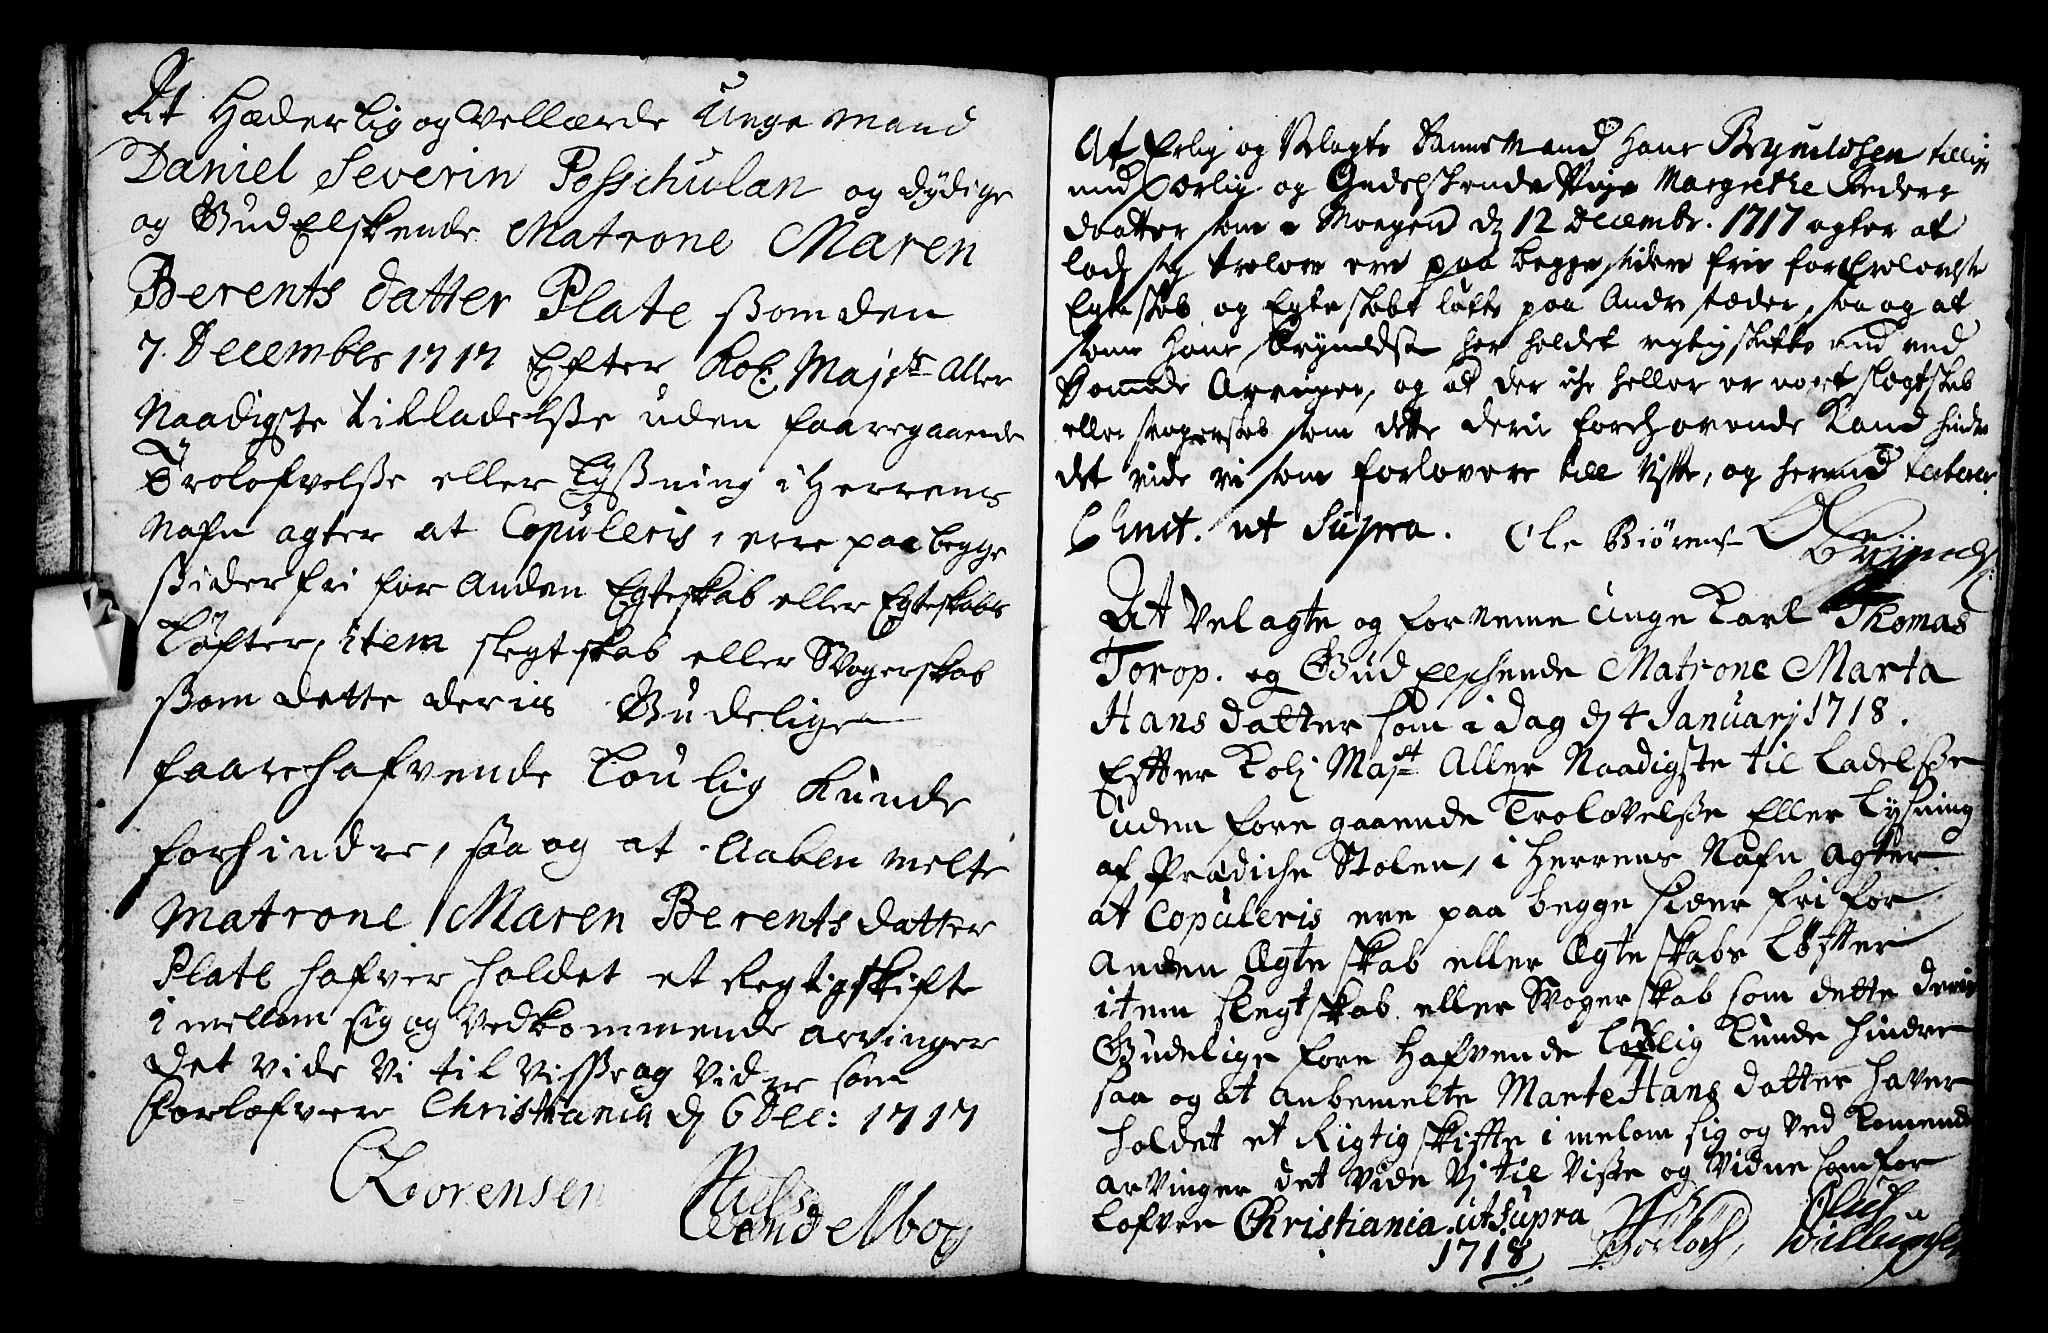 At Hæderlig og Vellærde Unge Mand
Daniel Severin Posschulan og dydige
og GudElskende Matrone Maren
Berents datter Plate ßom den
7. Decembr 1717 Efter Kol. Majts Aller
Naadigste tilladelße uden faaregaaende
Trolofvelße eller Lyßning i Herrens
Nafn agter at Copuleris, erre paa begge
ßider fri for Anden Egteskab eller Egteskabs
Løfter, item slegtskab eller Svogerskab
ßom dette deris Gudelige
faarehafvende Loulig Kunde
forhindre, ßaa og at Aabenmelte
Matrone Maren Berents datter
Plate hafver holdet et Regtig skifte
i mellom sig og Vedkommende arvinger
det vide Vi til Visße og Vidne som
Forlofvere Christiania d 6 Dec: 1717
Lorensen Niels
Wendelboe
At Erlig og Velagte Danne Mand Hans Brynildsen tillige
med Erlig og Gudelskende Pige Margrethe Peders
daatter som i Morgen d 12 Decembr. 1717 agter at
lade sig trolove ere paa begge sider frie for trolovede
Egteskab og Egteskabs løfte paa Andre stæder, saa og at
somme Hans Brynildsen har holdet rigtig skifte med ved
kommende Arvinger, og at der iche heller er noget slegtskab
eller svogerskab som dette deris forehavende Kand hindre
det vide vi som forlovere till viste, og hermed
Christ. ut Supra. Ole Biørens
At Velagte og fornemme Unge Karl Thomas
Torop. og Gud Elschende Matrone Marta
Hans datter som i dag d 4 Januarj 1718.
Effter Kolj Mayst Aller Naadigste til Ladelße
uden fore gaaende Trolovelße Eller Lyßning
af Prædiche Stolen, i Herrens Nafn Agter
at Copuleris ere paa begge sider fri for
Anden Ægte skab eller Ægte skabs Løffter
item slegtskab eller Svoger skab som dette deris
Gudelige fore Hafvende Lovlig Kunde hindre
saa og at Anbemelte Marte Hans datter haver
holdet et Rigtig skiffte i melom sig og Ved Komende
arvinger det Vide Vj til Viße og Vidne som for
Lofvere Christiania ut Supra
1718